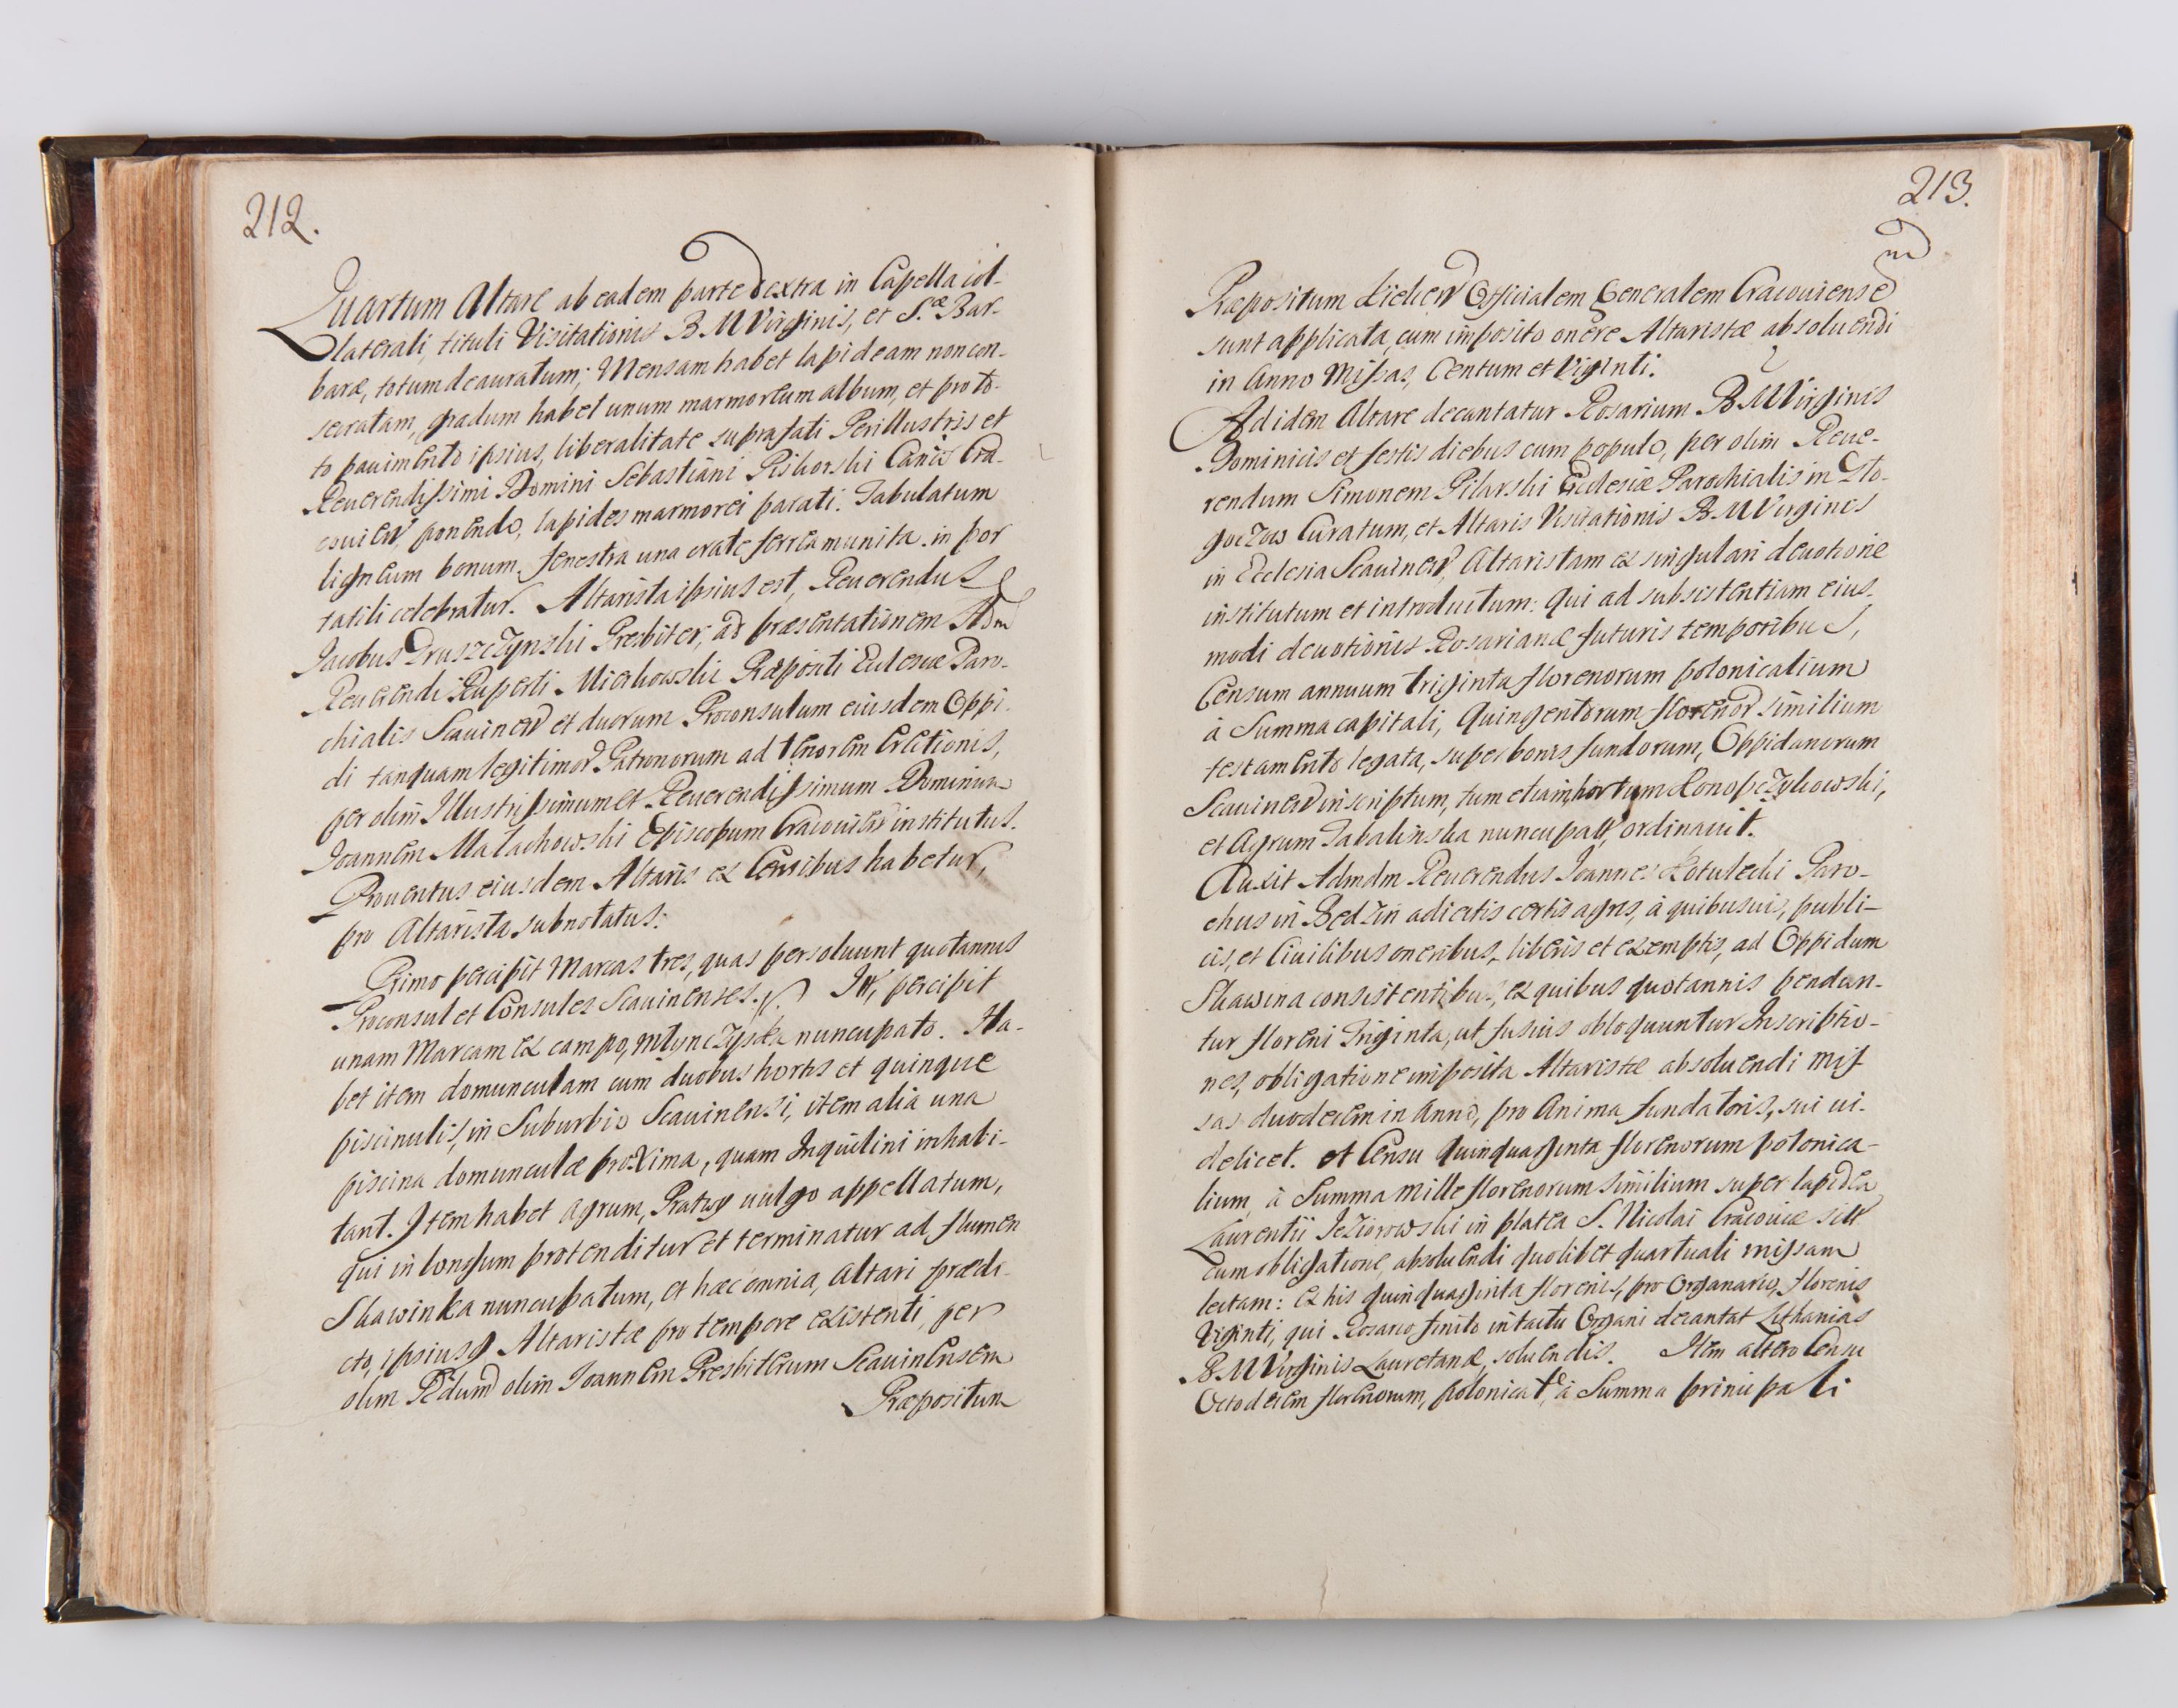 212.
Quartum Altare ab eadem parte dextra in Capella col-
laterali, tituli Visitationis B. M Virginis, et S.æ Bar-
baræ, totum deauratum; Mensam habet lapideam non con-
secratam, gradum habet unum marmoreum album, et pro to-
to pauimento ipsius, liberalitate suprafati Perillustris et
Reuerendissimi Domini Sebastiani Piskorski Canci Cra-
couien, ponendo, lapides marmorei parati. Tabulatum
ligneum bonum. fenestra una crate ferrea munita. in por
tatili celebratur. Altarista ipsius est, Reuerendus
Jacobus Druszczynski Presbiter, ad præsentationem Adm
Reuerendi Ruperti Miechowski Præpositi Eclesiæ Paro-
chialis Scauinen et duorum Proconsulum eiusdem Oppi-
di tanquam legitimor Patronorum ad tenorem Erectionis,
per olim Illustrissimum et Reuerendissimum Dominum
Joannem Malachowski Episcopum Cracouien institutus.
Prouentus eiusdem Altaris ex Censibus habetur,
pro Altarista subnotatus:
Primo percipit Marcas tres, quas persoluunt quotannis
Proconsul et Consules Scauinenses. It, percipit
unam Marcam ex campo, Młynczyska nuncupato. Ha-
bet item domunculam cum duobus hortis et quinque
piscinulis, in Suburbio Scauinensi, item alia una
piscina domunculæ proxima, quam Inquilini inhabi-
tant. Item habet agrum, Pratwy uulgo appellatum,
qui in longum protenditur et terminatur ad flumen
Skawinka nuncupatum, et hæc omnia, Altari prædi-
cto, ipsiusq Altaristæ pro tempore existenti, per
olim Pdum olim Joannem Presbiterum Scauinensem
Præpositum
213.
nd
Præpositum Kielcen Officialem Generalem Cracouiense
sunt applicata, cum imposito onere Altaristæ absoluendi
in Anno Missas, Centum et Viginti.
Ad idem Altare decantatur Rosarium B. M Virginis
Dominicis et festis diebus cum populo, per olim Reue-
rendum Simonem Pilarski Ecclesiæ Parochialis in Sto-
goczow Curatum, et Altaris Visitationis B. M Virginis
in Ecclesia Scauinen Altaristam ex singulari deuotione
institutum et introductum: Qui ad subsistentiam eius-
modi deuotionis Rosarianæ futuris temporibus,
Censum annuum triginta florenorum polonicalium
à Summa capitali, Quingentorum florenor similium
testamento legata, super bonis fundorum, Oppidanorum
Scauinen inscriptum, tum etiam hortum Konopczykowski,
et Agrum Tabalinska nuncupatt, ordinauit.
Auxit Admdm Reuerendus Joannes Kotulecki Paro-
chus in Bedzin adiectis certis agris, à quibusuis, publi-
cis, et Ciuilibus oneribus, liberis et exemptis, ad Oppidum
Skawina consistentibus, ex quibus quotannis pendun-
tur floreni Triginta, ut fusius obloquuntur Inscriptio-
nes, obligatione imposita Altaristæ absoluendi Mis-
sas duodecim in Anno, pro Anima fundatoris, sui ui-
delicet. et Censu Quinquaginta florenorum polonica-
lium, à Summa Mille florenorum similium super lapidea
Laurentii Jeziorowski in platea S. Nicolai Cracouiæ sitt
cum obligatione, absoluendi quolibet quartuali missam
lectam: ex his quinquaginta florenis, pro Organario, florenis
Viginti, qui Rosario finito in tactu Organi decantat Lithanias
B. M Virginis Lauretanæ, soluendis. Item altero Censu
Octodecim florenorum, polonicat, à Summa principali